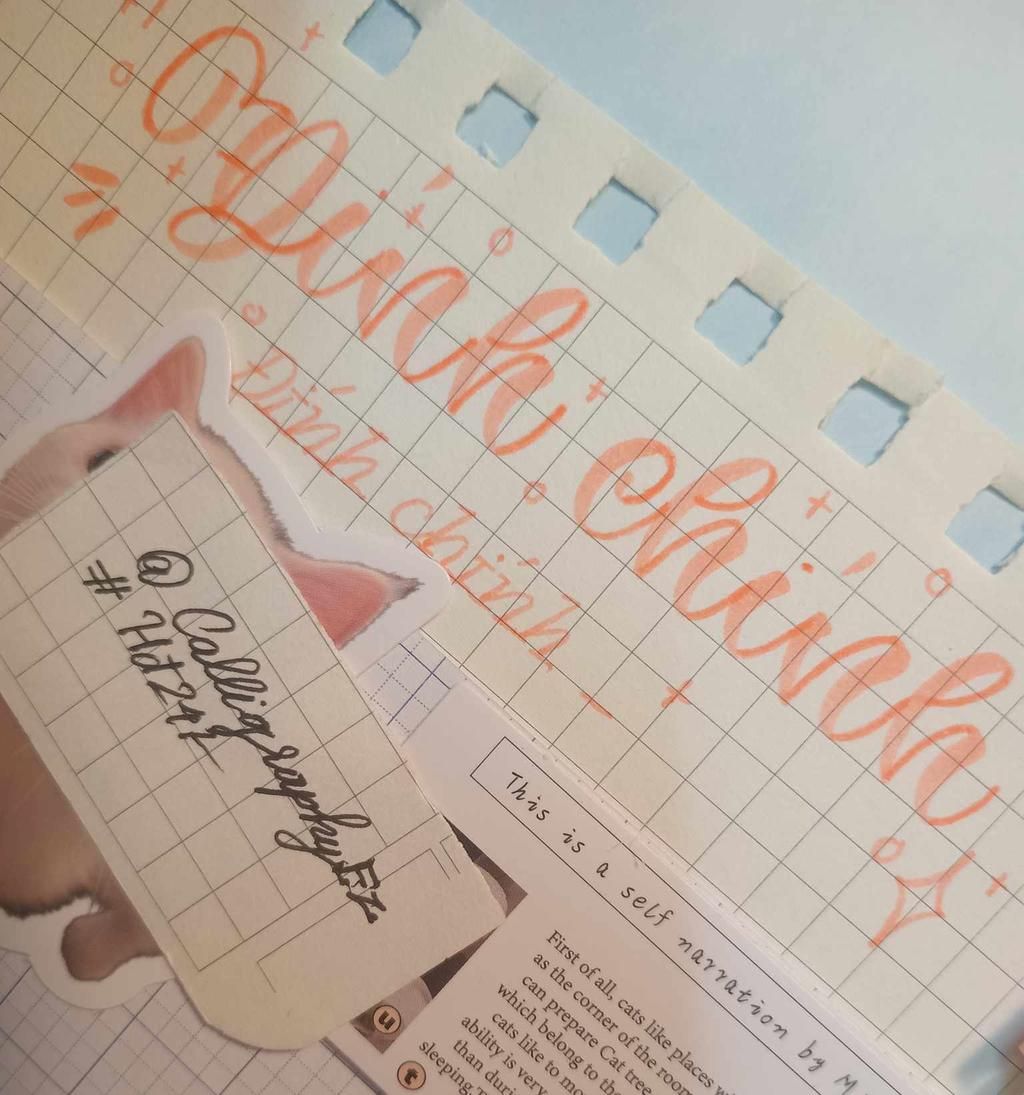 Đính chính
Đính chính
@ CalligraphyEz
# Hdt24h
This is a self narration by M
First of all, cats like places w
as the corner of the room
can prepare Cat tree
which belong to the
cats like to mo
ability is very
than duri
sleeping. T
u
t